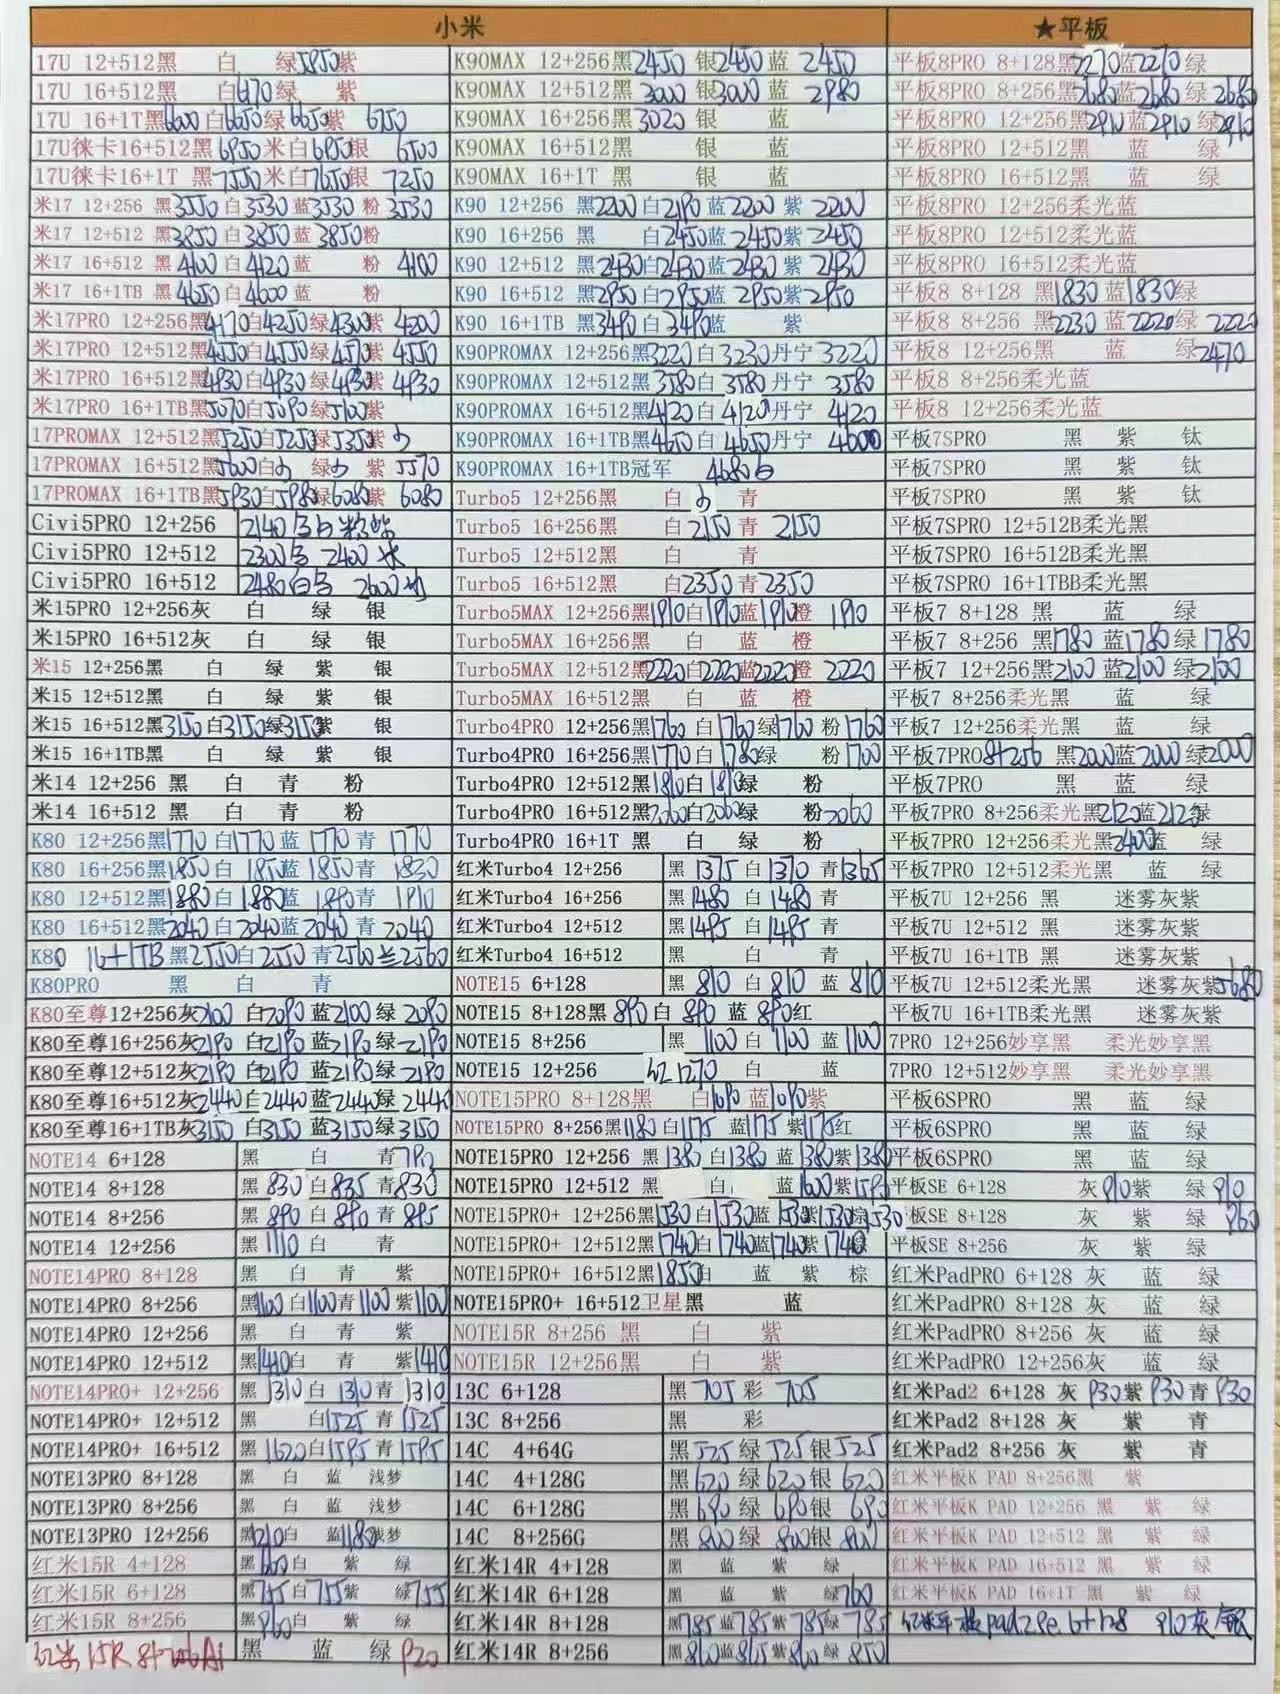 小米
17U 12+512黑 白 绿5850紫
17U 16+512黑 白6170绿 紫
17U 16+1T黑6600白6650绿6650紫 6750
17U徕卡16+512黑6950米白6950银 6500
17U徕卡16+1T 黑7550米白7650银 7250
米17 12+256 黑3550白3530蓝3530 粉 3530
米17 12+512 黑3850白3850蓝3850粉
米17 16+512 黑4100白4120蓝 粉 4100
米17 16+1TB 黑4650白4600蓝 粉
米17PRO 12+256黑4170白4250绿4300紫 4200
米17PRO 12+512黑4550白4550绿4570紫 4550
米17PRO 16+512黑4930白4930绿4930紫 4930
米17PRO 16+1TB黑5070白5090绿5100紫
17PROMAX 12+512黑5250白5250绿5350紫
17PROMAX 16+512黑5600白 绿 紫 5570
17PROMAX 16+1TB黑5930白5980绿6080紫 6080
Civi5PRO 12+256 2140
Civi5PRO 12+512 2300 2400
Civi5PRO 16+512 2480 2600
米15PRO 12+256灰 白 绿 银
米15PRO 16+512灰 白 绿 银
米15 12+256黑 白 绿 紫 银
米15 12+512黑 白 绿 紫 银
米15 16+512黑3150白3150绿3150紫 银
米15 16+1TB黑 白 绿 紫 银
米14 12+256 黑 白 青 粉
米14 16+512 黑 白 青 粉
K80 12+256黑1770 白1770 蓝 1770 青 1770
K80 16+256黑1850 白 1850蓝 1850 青 1830
K80 12+512黑1880 白 1880蓝 1890 青 1910
K80 16+512黑2040 白2040蓝 2040 青 2040
K80 16+1TB 黑2550白2550 青2560兰2560
K80PRO 黑 白 青
K80至尊12+256灰2100 白2090 蓝2100 绿 2090
K80至尊16+256灰2190 白2190 蓝2190 绿2190
K80至尊12+512灰2190 白2190 蓝2190 绿2190
K80至尊16+512灰2440 白2440 蓝2440绿 2440
K80至尊16+1TB灰3150 白3150 蓝3150绿 3150
NOTE14 6+128 黑 白 青790
NOTE14 8+128 黑 830 白835 青830
NOTE14 8+256 黑 890 白 890 青 895
NOTE14 12+256 黑 1110 白 青
NOTE14PRO 8+128 黑 白 青 紫
NOTE14PRO 8+256 黑1100白1100青1100紫1100
NOTE14PRO 12+256 黑 白 青 紫
NOTE14PRO 12+512 黑1410白 青 紫1410
NOTE14PRO+ 12+256 黑 1310 白 1310 青 1310
NOTE14PRO+ 12+512 黑 白1525 青 1525
NOTE14PRO+ 16+512 黑 1620白1595青1595
NOTE13PRO 8+128 黑 白 蓝 浅梦
NOTE13PRO 8+256 黑 白 蓝 浅梦
NOTE13PRO 12+256 黑1210白 蓝1180浅梦
红米15R 4+128 黑600白 紫 绿
红米15R 6+128 黑755白755紫 绿755
红米15R 8+256 黑860白 紫 绿
红米15R 黑 蓝 绿 920
K90MAX 12+256黑2450 银2450 蓝 2450
K90MAX 12+512黑3000 银3000 蓝 2980
K90MAX 16+256黑3020 银 蓝
K90MAX 16+512黑 银 蓝
K90MAX 16+1T 黑 银 蓝
K90 12+256 黑2200 白2190 蓝2200 紫 2200
K90 16+256 黑 白2450蓝 2450紫 2450
K90 12+512 黑2430白2430 蓝 2430 紫 2430
K90 16+512 黑2950 白2950蓝 2950紫 2950
K90 16+1TB 黑3490 白3490蓝 紫
K90PROMAX 12+256黑3220 白 3230 丹宁 3220
K90PROMAX 12+512黑3580 白 3580 丹宁 3580
K90PROMAX 16+512黑4120 白 4120 丹宁 4120
K90PROMAX 16+1TB黑4650 白 4650 丹宁 4600
K90PROMAX 16+1TB冠军 4680白
Turbo5 12+256黑 白 青
Turbo5 16+256黑 白2150 青 2150
Turbo5 12+512黑 白 青
Turbo5 16+512黑 白2350青 2350
Turbo5MAX 12+256黑1910白1910蓝1910橙 1910
Turbo5MAX 16+256黑 白 蓝 橙
Turbo5MAX 12+512黑2220白2220蓝2220橙 2220
Turbo5MAX 16+512黑 白 蓝 橙
Turbo4PRO 12+256黑1760 白1760绿1760 粉1760
Turbo4PRO 16+256黑1770 白1780绿 粉1700
Turbo4PRO 12+512黑1810白1810绿 粉
Turbo4PRO 16+512黑2060白2060绿 粉2060
Turbo4PRO 16+1T 黑 白 绿 粉
红米Turbo4 12+256 黑 1375 白 1370 青1365
红米Turbo4 16+256 黑1480 白 1480 青
红米Turbo4 12+512 黑1495 白 1495 青
红米Turbo4 16+512 黑 白 青
NOTE15 6+128 黑 810 白 810 蓝 810
NOTE15 8+128黑 890 白 890 蓝 890红
NOTE15 8+256 黑 1100 白 1100 蓝1100
NOTE15 12+256 红1270 白 蓝
NOTE15PRO 8+128黑 白1090 蓝1090紫
NOTE15PRO 8+256黑1180白1175 蓝1175 紫1175红
NOTE15PRO 12+256 黑 1380 白1380 蓝 1380紫1380
NOTE15PRO 12+512 黑 白 蓝1600紫1595
NOTE15PRO+ 12+256黑1530白1530蓝 1530紫1530棕1530
NOTE15PRO+ 12+512黑1740白1740蓝1740紫1740棕
NOTE15PRO+ 16+512黑1850白 蓝 紫 棕
NOTE15PRO+ 16+512卫星黑 蓝
NOTE15R 8+256 黑 白 紫
NOTE15R 12+256黑 白 紫
13C 6+128 黑 705 彩 705
13C 8+256 黑 彩
14C 4+64G 黑 525 绿 525银 525
14C 4+128G 黑620 绿 620 银 620
14C 6+128G 黑 690 绿 690银 690
14C 8+256G 黑 800绿 800银 800
红米14R 4+128 黑 蓝 紫 绿
红米14R 6+128 黑 蓝 紫 绿760
红米14R 8+128 黑785 蓝785紫785绿 785
红米14R 8+256 黑810蓝815紫810绿 850
★平板
平板8PRO 8+128黑2270蓝2270 绿
平板8PRO 8+256黑2680蓝2680 绿 2680
平板8PRO 12+256黑2910蓝2910 绿2910
平板8PRO 12+512黑 蓝 绿
平板8PRO 16+512黑 蓝 绿
平板8PRO 12+256柔光蓝
平板8PRO 12+512柔光蓝
平板8PRO 16+512柔光蓝
平板8 8+128 黑1830 蓝1830绿
平板8 8+256 黑2230 蓝2220绿 2220
平板8 12+256黑 蓝 绿2470
平板8 8+256柔光蓝
平板8 12+256柔光蓝
平板7SPRO 黑 紫 钛
平板7SPRO 黑 紫 钛
平板7SPRO 黑 紫 钛
平板7SPRO 12+512B柔光黑
平板7SPRO 16+512B柔光黑
平板7SPRO 16+1TBB柔光黑
平板7 8+128 黑 蓝 绿
平板7 8+256 黑1780 蓝1780 绿 1780
平板7 12+256黑2100 蓝2100 绿2100
平板7 8+256柔光黑 蓝 绿
平板7 12+256柔光黑 蓝 绿
平板7PRO8+256 黑2000蓝2000 绿2000
平板7PRO 黑 蓝 绿
平板7PRO 8+256柔光黑2120蓝2120绿
平板7PRO 12+256柔光黑2400蓝 绿
平板7PRO 12+512柔光黑 蓝 绿
平板7U 12+256 黑 迷雾灰紫
平板7U 12+512 黑 迷雾灰紫
平板7U 16+1TB 黑 迷雾灰紫
平板7U 12+512柔光黑 迷雾灰紫5680
平板7U 16+1TB柔光黑 迷雾灰紫
7PRO 12+256妙享黑 柔光妙享黑
7PRO 12+512妙享黑 柔光妙享黑
平板6SPRO 黑 蓝 绿
平板6SPRO 黑 蓝 绿
平板6SPRO 黑 蓝 绿
平板SE 6+128 灰910紫 绿910
平板SE 8+128 灰 紫 绿 960
平板SE 8+256 灰 紫 绿
红米PadPRO 6+128 灰 蓝 绿
红米PadPRO 8+128 灰 蓝 绿
红米PadPRO 8+256 灰 蓝 绿
红米PadPRO 12+256灰 蓝 绿
红米Pad2 6+128 灰 930紫 930青 930
红米Pad2 8+128 灰 紫 青
红米Pad2 8+256 灰 紫 青
红米平板K PAD 8+256黑 紫
红米平板K PAD 12+256 黑 紫 绿
红米平板K PAD 12+512 黑 紫 绿
红米平板K PAD 16+512 黑 紫 绿
红米平板K PAD 16+1T 黑 紫 绿
红米平板pad2se 6+128 910灰/银